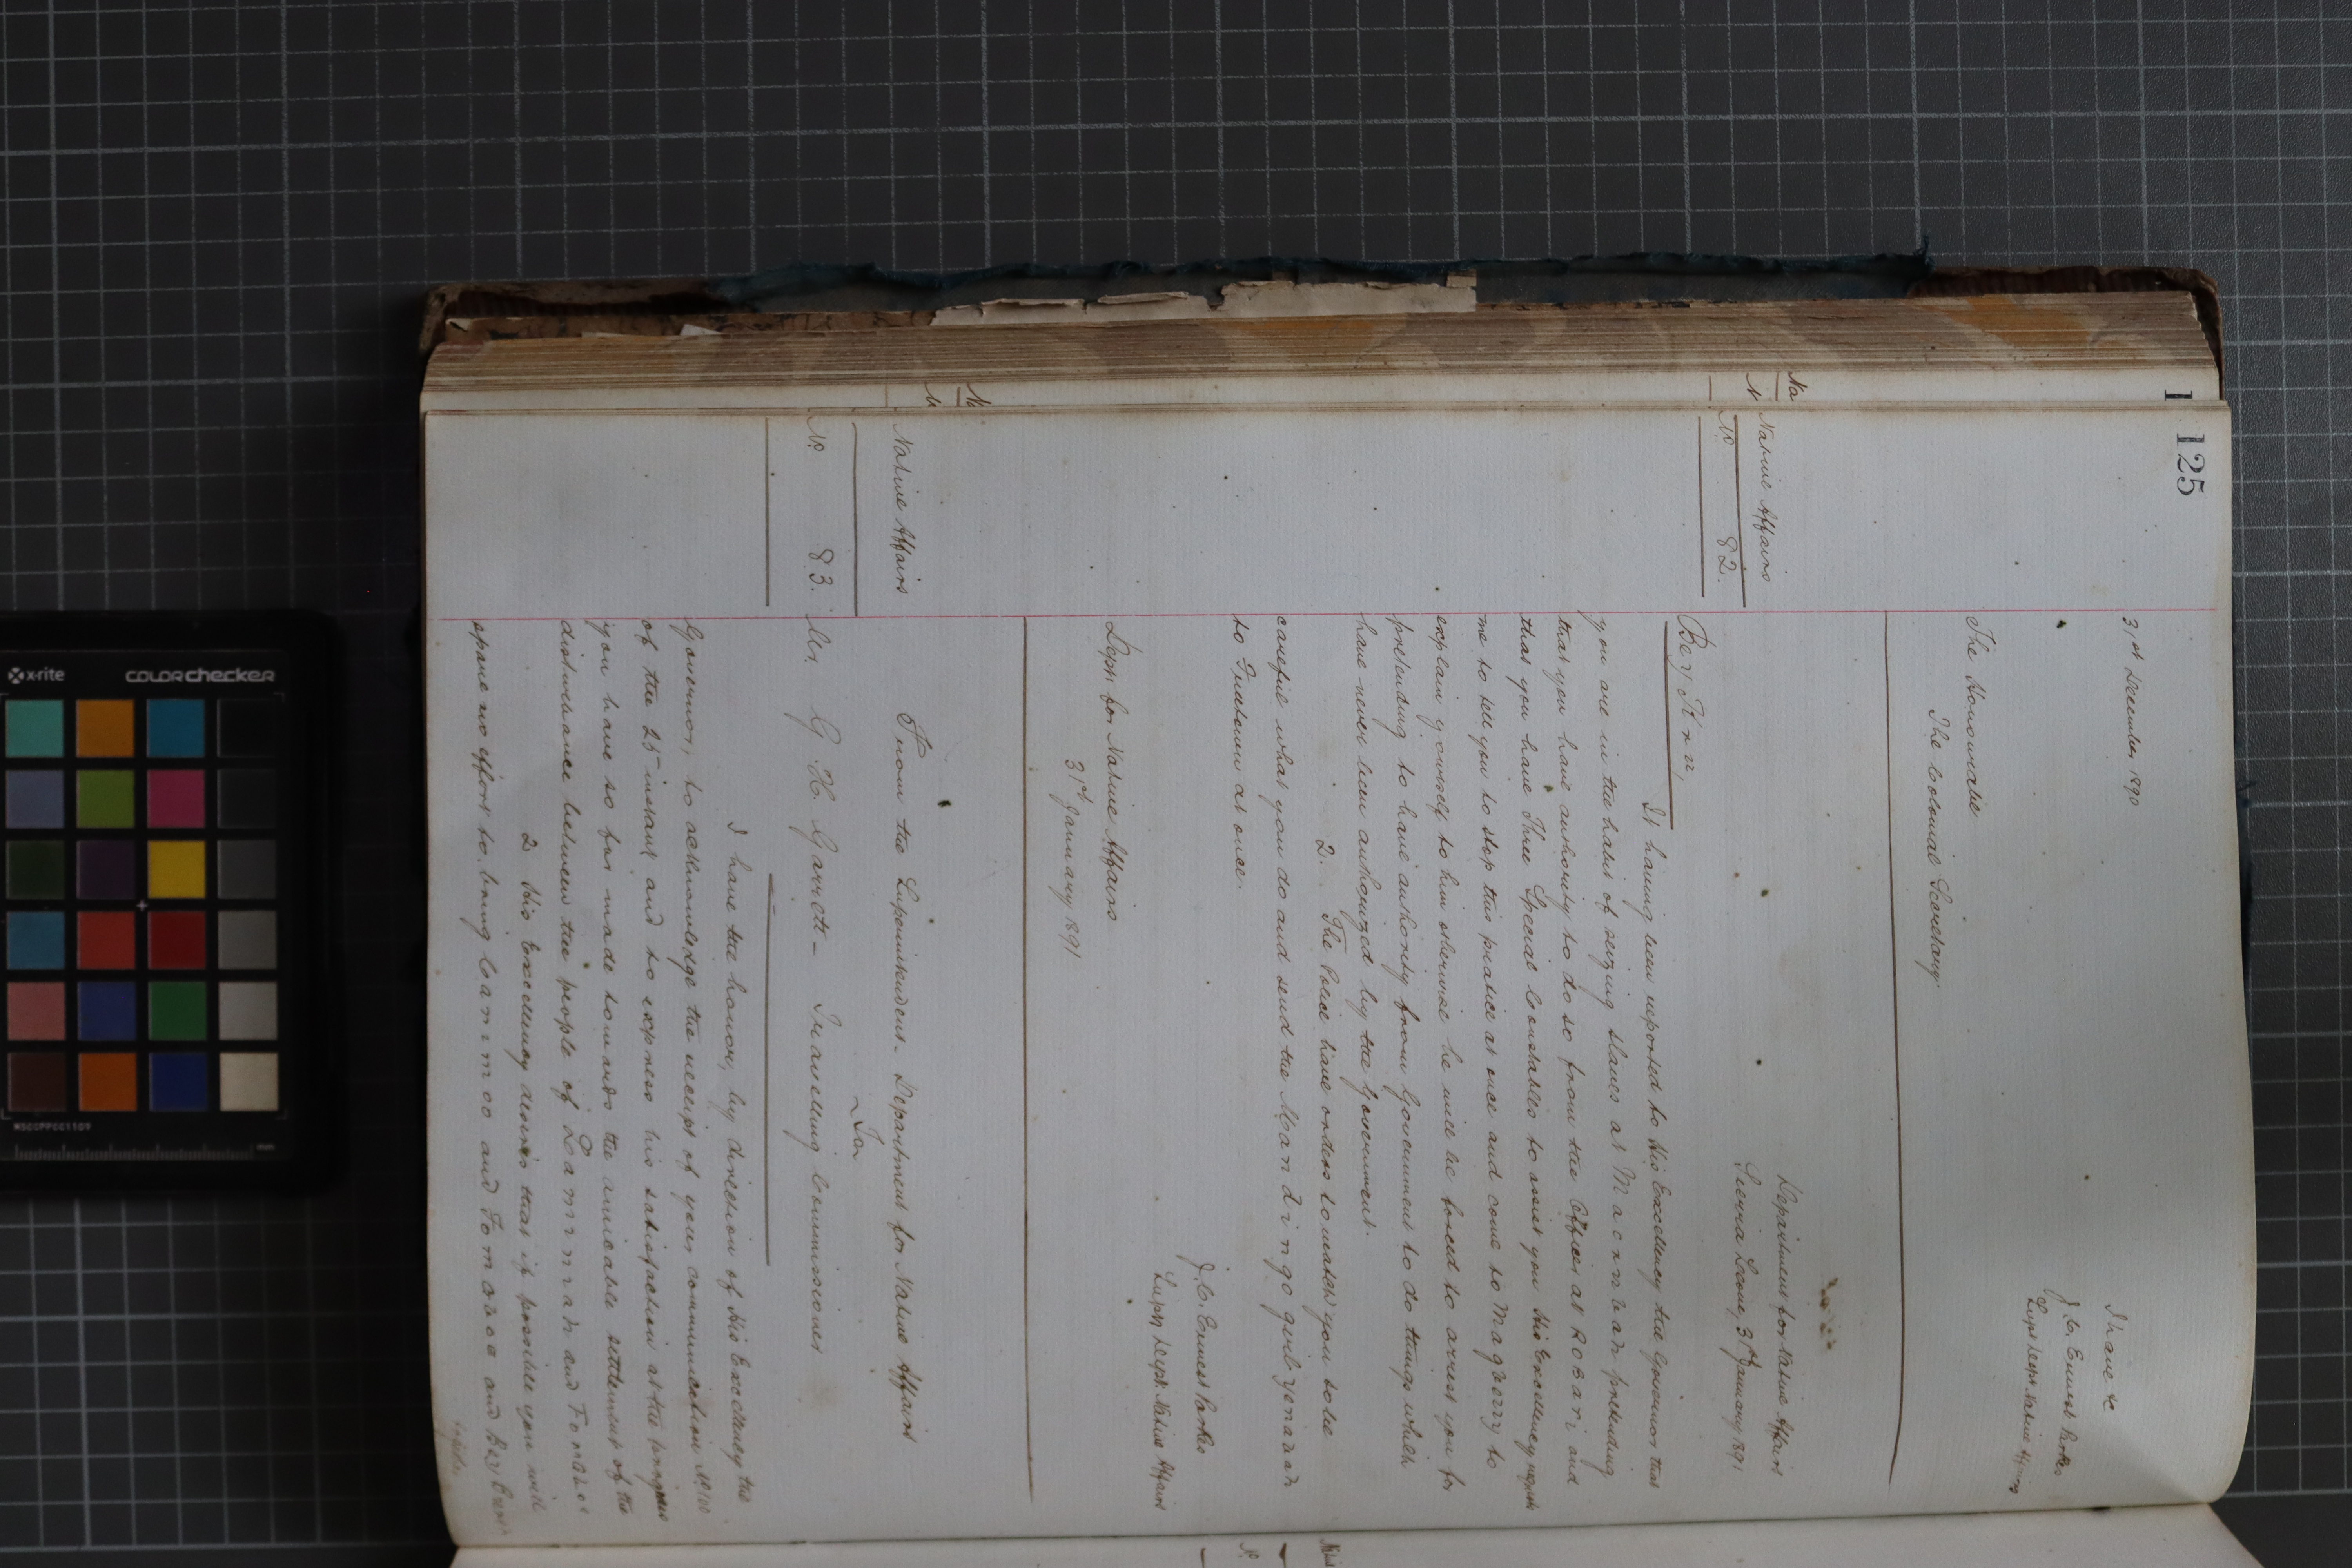 125
I have &c
31st December 1890
J. C. Ernest Parkes
Supt Dept. Native Affairs
The Honourable
The Colonial Secretary
Department for Native Affairs
Native Affairs
Sierra Leone, 31st January 1891
No. 82.
Bey Kinn,
It having been reported to His Excellency the Governor that
you are in the habit of seizing slaves at Mackneah pretending
that you have authority to do so from the Officer at Robari and
that you have Three Special Constables to assist you His Excellency requests
me to tell you to stop this practice at once and come to Magberry to
explain yourself to him otherwise he will be forced to arrest you for
pretending to have authority from Government to do things which
have never been authorized by the Government.
2. The Police have orders to watch you so be
careful what you do and send the Mandingo girl Yenanah
to Freetown at once.
J. C. Ernest Parkes
Supt Dept. Native Affairs
Dept. for Native Affairs
31st January 1891
Native Affairs
From the Superintendent Department for Native Affairs
To
No. 83.
Mr. G. H. Garrett - Travelling Commissioner
I have the honour, by direction of His Excellency the
Governor, to acknowledge the receipt of your communication No 100
of the 25 instant and to express his satisfaction at the progress
you have so far made towards the amicable settlement of the
disturbance between the people of and
2 His Excellency desires that if possible you will
spare no effort to bring and and Bey